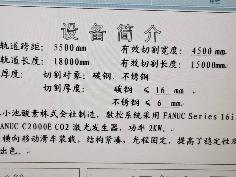 设备简介
轨道跨距：5500mm 有效切割宽度：4500mm
轨道长度：18000mm 有效切割长度：15000mm
厚度： 切割对象：碳钢、不锈钢
切割厚度： 碳钢 ≤ 16 mm
不锈钢 ≤ 6 mm
小池酸素株式会社制造，软控系统采用FANUC Series 16i
ANUC C2000E CO2 激光发生器，功率 2KW。
横向移动滑车装载，结构紧凑，光程固定，提高了稳定性
出色。